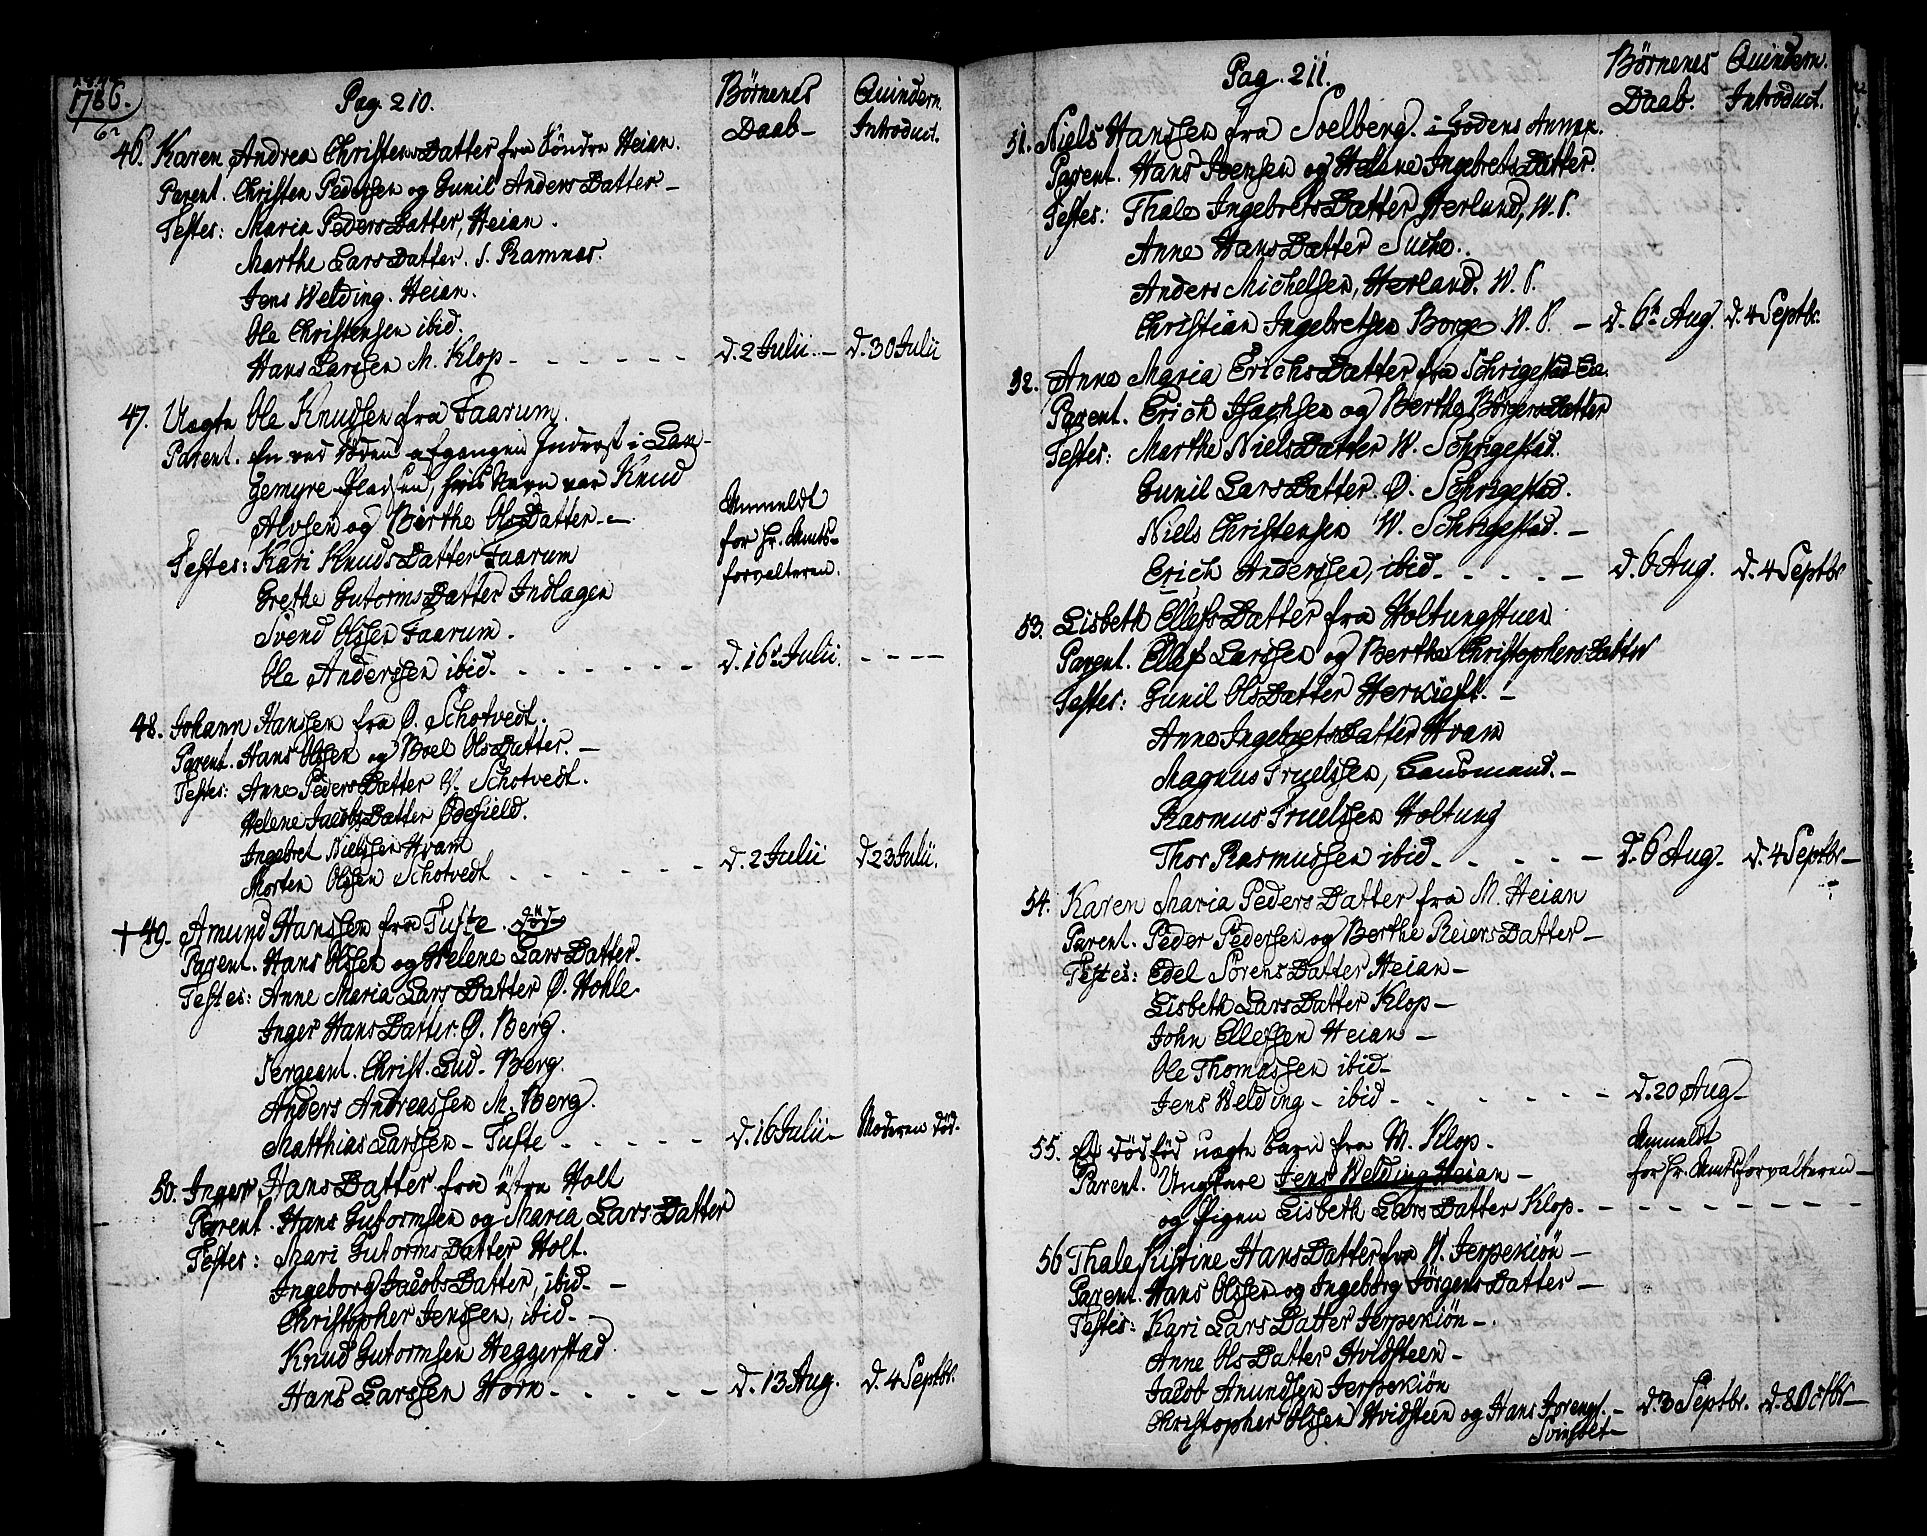 1786.
Pag. 210.
Børnenes Daab-
Quindern. Introduct.
46. Karen Andrea ChristensDatter fra Søndre Heian.
Parent. Christen Pedersen og Gunil AndersDatter -
Testes: Maria PedersDatter, Heian.
Marthe LarsDatter. S. Ramnas.
Jens Welding. Heian.
Ole Christensen ibid.
Hans Larssen M. Klop - - - - - - d. 2 Julii - d. 30 Julii
47. Uægte Ole Knudsen fra Faarum.
Parent. En ved Døden afgangen Inderst i Lan-
gemyre Pladsen, hvis Navn var Knud
Alvsen og Berthe OlsDatter -
Anmeldt
for Hr. Amts-
forvalteren.
Testes: Kari KnudsDatter Faarum
Grethe GutormsDatter Indlagen
Svend Olssen Faarum.
Ole Anderssen ibid. - - - - - - d. 16 Julii. - - - -
48. Johann Hanssen fra Ø. Schotvedt.
Parent. Hans Olssen og Boel OlsDatter. -
Testes: Anne PedersDatter Ø. Schotvedt.
Helene JacobsDatter Ødefield.
Ingebret Nielssen Hvam
Morten Olssen Schotvedt - - - - - - d. 2 Julii d 23 Julii.
† 49. Amund Hanssen fra Tufte. død
Parent. Hans Olssen og Helene LarsDatter.
Testes: Anne Maria LarsDatter Ø. Hohle
Inger HansDatter. Ø. Berg.
Sergeant. Christ. Lud. Berg.
Anders Andreassen M. Berg.
Matthias Larssen - Tufte - - - - - d. 16 Julii - Moderen død.
50. Inger HansDatter fra østre Holt
Parent. Hans Gutormsen og Maria LarsDatter
Testes: Mari GutormsDatter Holt.
Ingeborg JacobsDatter, ibid. -
Christopher Jenssen, ibid. -
Knud Gutormsen Heggerstad
Hans Larssen Horn - - - - - - d. 13 Aug. d. 4 Septbr.
Pag. 211.
Børnenes Daab.
Quindern. Introduct.
51. Niels Hanssen fra Soelberg. i Godens Annex.
Parent. Hans Svensen og Helene IngebretsDatter.
Testes: Thale IngebretsDatter Herland, W. S.
Anne HansDatter Suche.
Anders Michelsen, Herland. W. S.
Christian Ingebretsen Borge W. S. - d. 6t Aug. d. 4 Septbr.
52. Anne Maria ErichsDatter fra Schrigestad
Parent. Erich Isachsen og Berthe BörgersDatter
Testes: Marthe NielsDatter W. Schrigestad.
Gunil LarsDatter. Ø. Schrigestad.
Niels Christensen W. Schrigestad. -
Erich Anderssen, ibid - - - - - d. 6 Aug. d. 4 Septbr
53. Lisbeth EllefsDatter fra Holtungstuen
Parent. Ellef Larssen og Berthe ChristophersDatter
Testes: Gunil OlsDatter Herkieft. -
Anne IngebretsDatter Hvam
Magnus Truelssen, Lensmand. -
Rasmus Truelssen Holtung
Thor Rasmussen ibid - - - - - d. 6 Aug. d. 4 Septbr -
54. Karen Maria PedersDatter fra M. Heian
Parent. Peder Pedersen og Berthe ReiersDatter -
Testes: Edel SørensDatter Heian -
Lisbeth LarsDatter Klop -
John Ellefsen Heian -
Ole Thomassen ibid -
Jens Welding - ibid - - - - - - d. 20 Aug -
55. Et dødfød uægte Barn fra M. Klop -
Parent. Ungkare Jens Welding Heian -
og Pigen Lisbeth LarsDatter Klop. - - - - - - -
Anmeldt
for Hr. Amtsforvalteren -
56 Thale Kistine HansDatter fra N. Jerpekiön -
Parent. Hans Olssen og Ingeborg JörgensDatter -
Testes: Kari LarsDatter Jerpekiön -
Anne OlsDatter Hvidsteen -
Jacob Anundsen Jerpekiön
Christopher Olssen Hvidsteen og Hans - d. 3 Septbr. d. 8 Octbr -